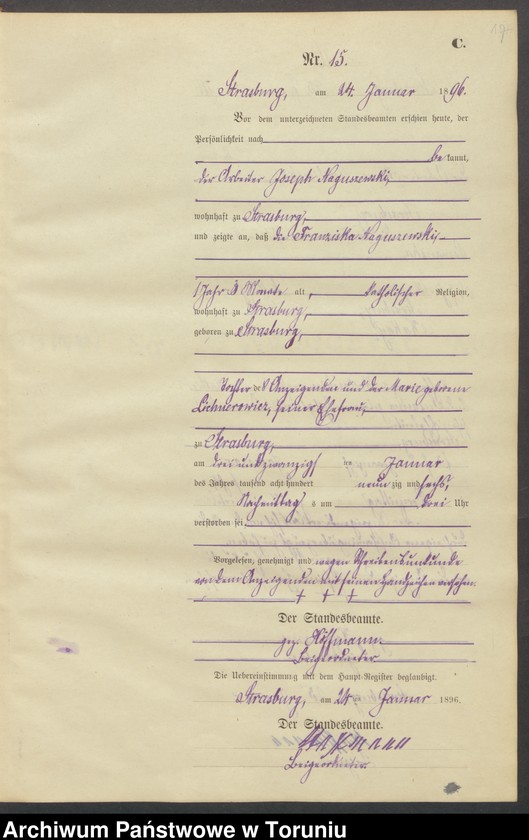 C.
Nr. 15.
Strasburg, am 24. Januar 1896.
Vor dem unterzeichneten Standesbeamten erschien heute, der
Persönlichkeit nach
be kannt,
der Arbeiter Joseph Naguszewski,
wohnhaft zu Strasburg,
und zeigte an, daß die Franziska Naguszewski,
1 Jahr Monate alt, katholischer Religion,
wohnhaft zu Strasburg,
geboren zu Strasburg,
Tochter des Anzeigenden und der Marie geborene
Lichnerowicz, seiner Ehefrau,
zu Strasburg,
am drei und zwanzigs ten Januar
des Jahres tausend acht hundert neun zig und sechs,
Nachmittags um drei Uhr
verstorben sei.
Vorgelesen, genehmigt und wegen Schreibensunkunde
von dem Anzeigenden mit seinen Handzeichen versehen.
† † †
Der Standesbeamte.
gez.
Beigeordneter
Die Uebereinstimmung mit dem Haupt-Register beglaubigt.
Strasburg, am 24 ten Januar 1896.
Der Standesbeamte.
Beigeordneter
Archiwum Państwowe w Toruniu